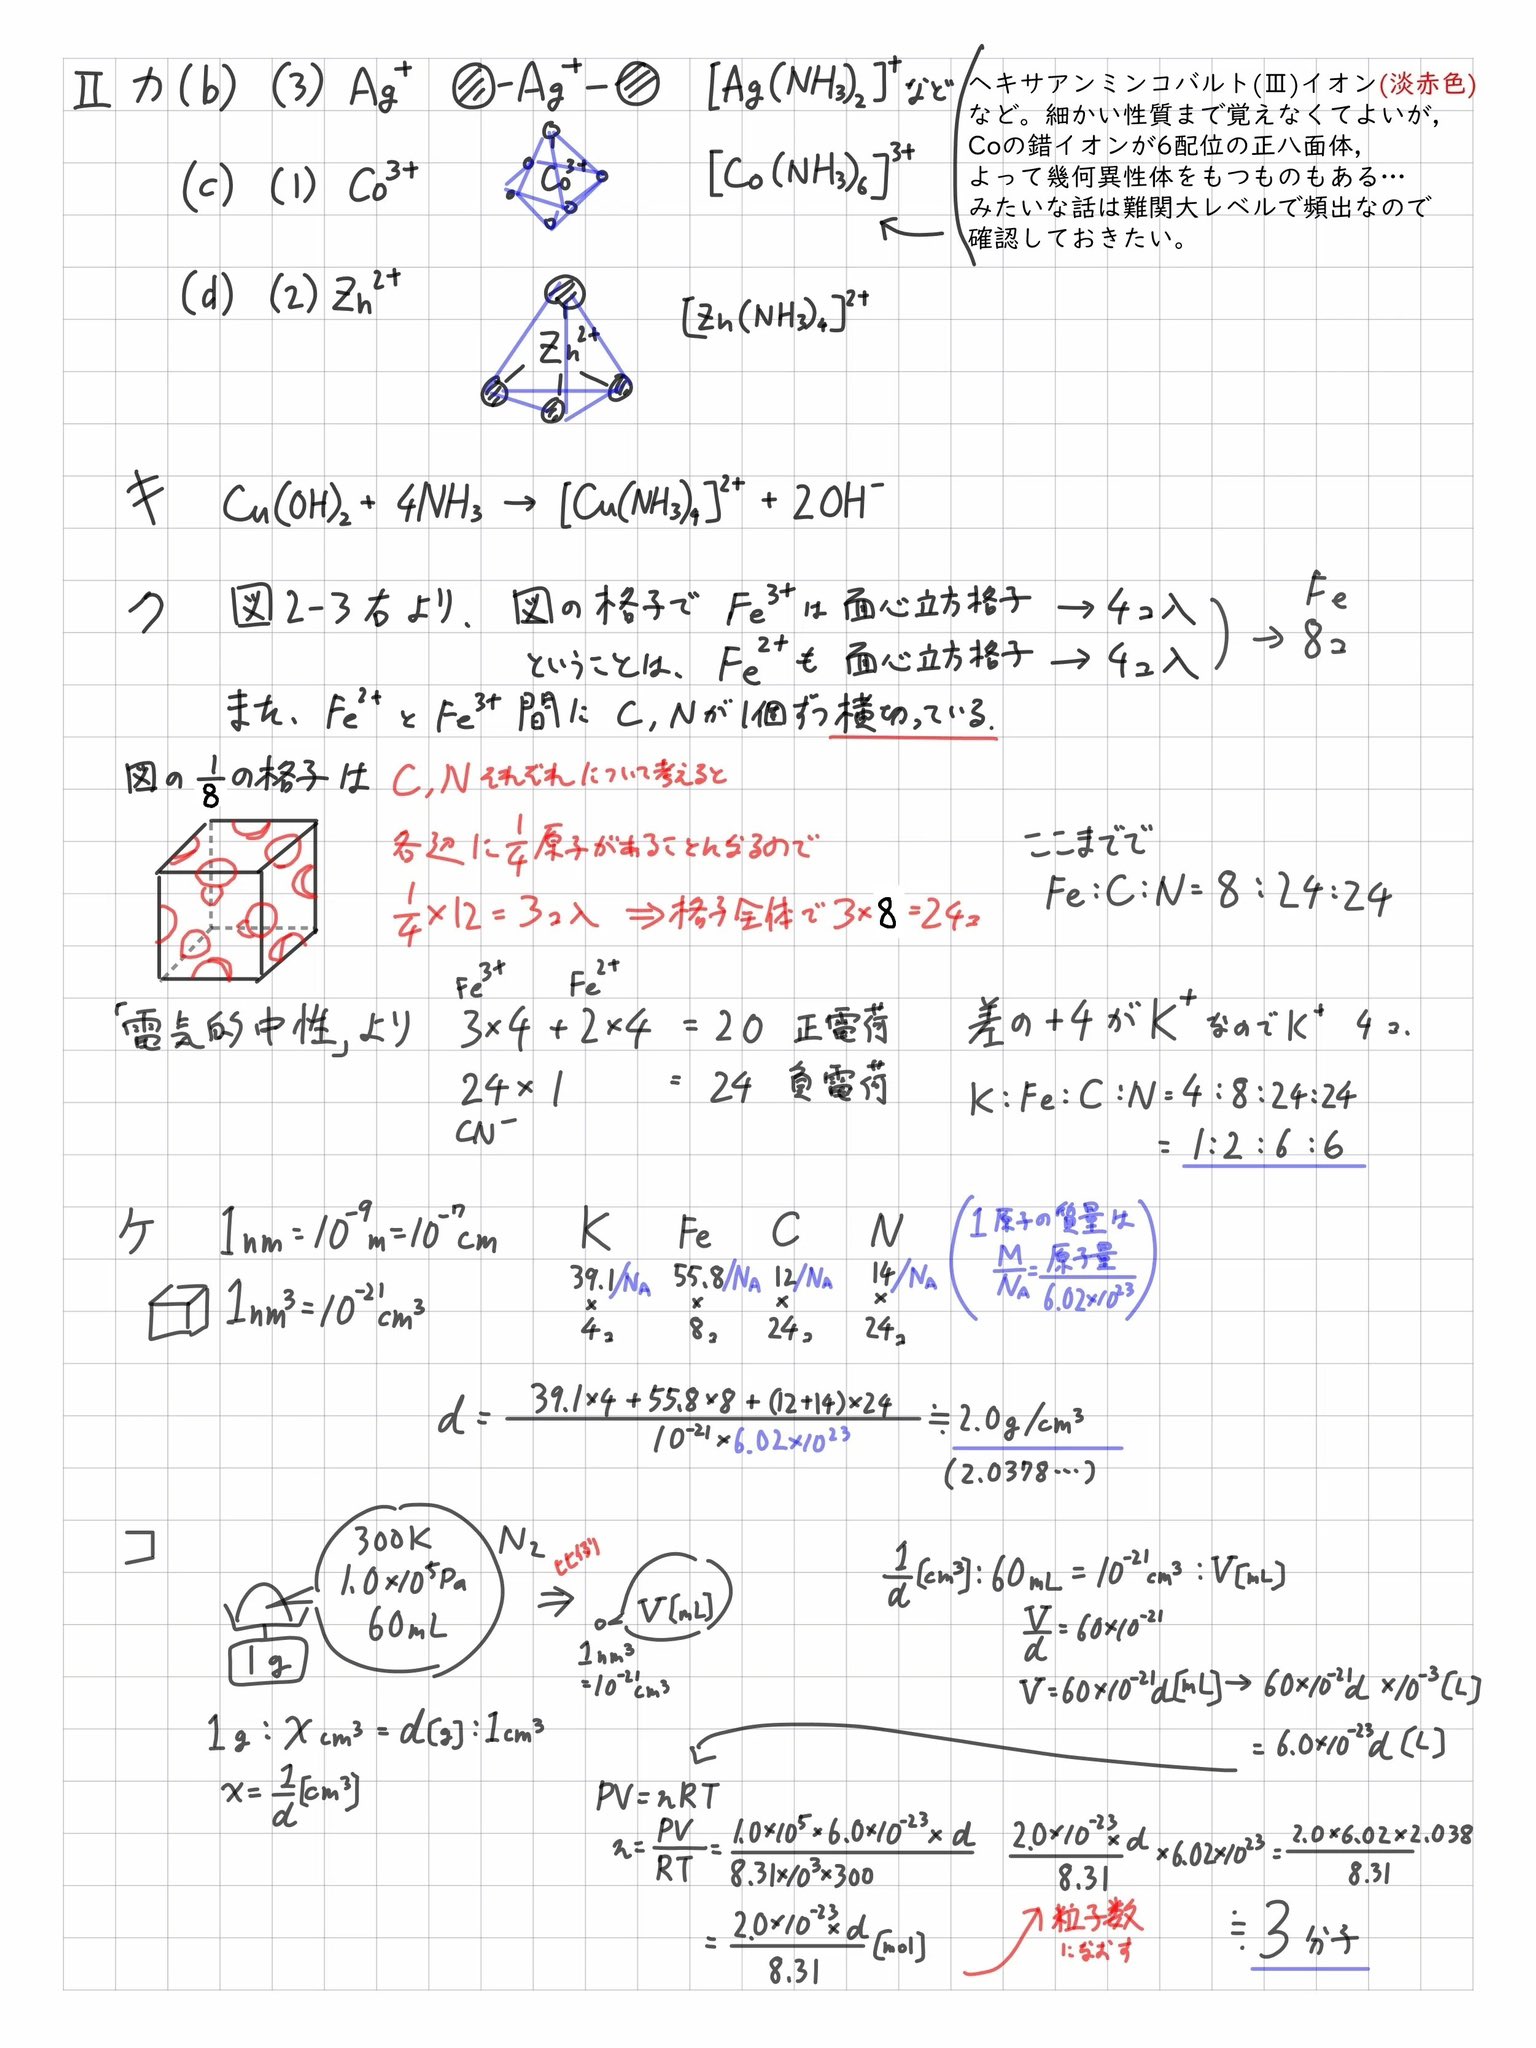 Ⅱ カ (b) (3) Ag⁺ -Ag⁺- [Ag(NH₃)₂]⁺など
ヘキサアンミンコバルト(Ⅲ)イオン(淡赤色)
など。細かい性質まで覚えなくてよいが，
Coの錯イオンが6配位の正八面体，
よって幾何異性体をもつものもある…
みたいな話は難関大レベルで頻出なので
確認しておきたい。
(c) (1) Co³⁺ Co³⁺ [Co(NH₃)₆]³⁺
(d) (2) Zn²⁺ Zn²⁺ [Zn(NH₃)₄]²⁺
キ Cu(OH)₂ + 4NH₃ → [Cu(NH₃)₄]²⁺ + 2OH⁻
ク 図2-3右より、図の格子で Fe³⁺は 面心立方格子 → 4コ入
ということは、Fe²⁺も 面心立方格子 → 4コ入
→ Fe 8コ
また、Fe²⁺とFe³⁺間に C, Nが1個ずつ横切っている.
図の 1/8 の格子は C, N それぞれについて考えると
各辺に 1/4 原子があることになるので
1/4 × 12 = 3コ入 ⇒ 格子全体で 3×8 = 24コ
ここまでで
Fe : C : N = 8 : 24 : 24
Fe³⁺ Fe²⁺
「電気的中性」より 3×4 + 2×4 = 20 正電荷
24×1 = 24 負電荷
CN⁻
差の +4 が K⁺ なので K⁺ 4コ.
K : Fe : C : N = 4 : 8 : 24 : 24
= 1 : 2 : 6 : 6
ケ 1nm = 10⁻⁹m = 10⁻⁷cm
1nm³ = 10⁻²¹cm³
K Fe C N
39.1/N_A 55.8/N_A 12/N_A 14/N_A
× × × ×
4コ 8コ 24コ 24コ
(1原子の質量は
M/N_A = 原子量/6.02×10²³)
d = (39.1×4 + 55.8×8 + (12+14)×24)/(10⁻²¹ × 6.02×10²³) ≒ 2.0g/cm³
(2.0378…)
コ 300K N₂
1.0×10⁵Pa
60mL
1g
⇒ V[mL]
1nm³
=10⁻²¹cm³
1g : x cm³ = d[g] : 1cm³
x = 1/d [cm³]
1/d [cm³] : 60mL = 10⁻²¹cm³ : V[mL]
V/d = 60×10⁻²¹
V = 60×10⁻²¹d[mL] → 60×10⁻²¹d ×10⁻³[L]
= 6.0×10⁻²³d [L]
PV = nRT
n = PV/RT = (1.0×10⁵×6.0×10⁻²³×d)/(8.31×10³×300)
= (2.0×10⁻²³×d)/8.31 [mol]
粒子数
になおす
(2.0×10⁻²³×d)/8.31 × 6.02×10²³ = (2.0×6.02×2.038)/8.31
≒ 3 分子